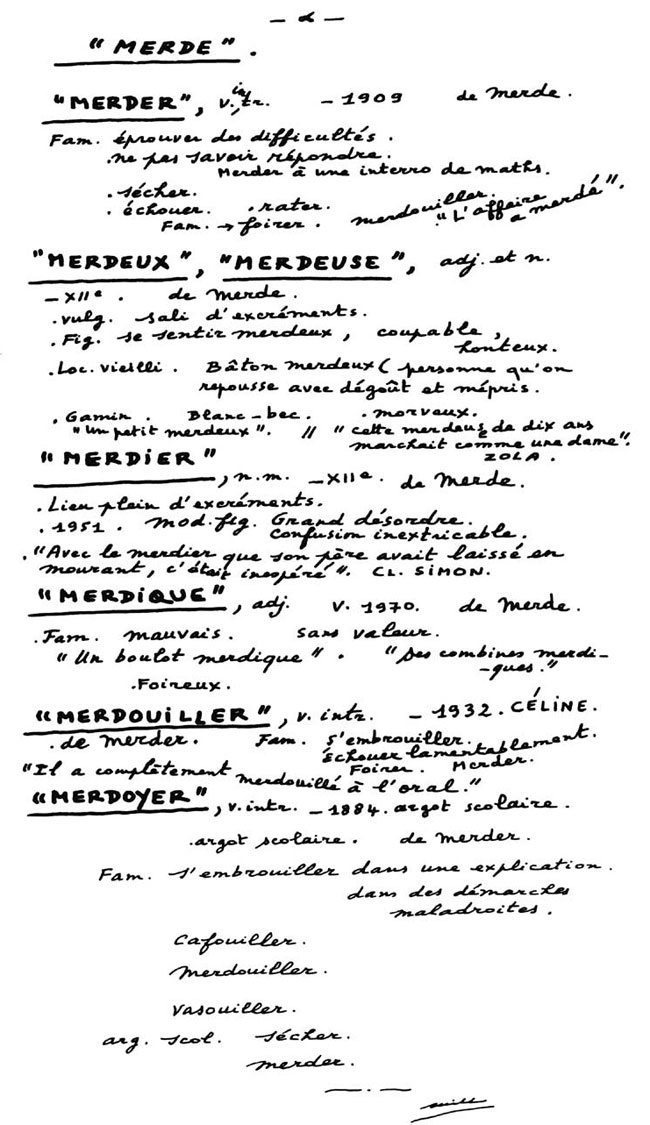 — α —
"MERDE".
"MERDER", v. intr. – 1909 de Merde.
Fam. éprouver des difficultés.
.ne pas savoir répondre.
Merder à une interro de maths.
.sécher.
.échouer. .rater. merdouiller. "L'affaire a merdé".
Fam. → foirer.
"MERDEUX", "MERDEUSE", adj. et n.
– XIIe. de Merde.
.vulg. sali d'excréments.
.Fig. se sentir merdeux, coupable,
honteux.
.Loc. vieilli. Bâton merdeux (personne qu'on
repousse avec dégoût et mépris.
.Gamin. Blanc-bec. .morveux.
"Un petit merdeux". // "cette merdeuse de dix ans
marchait comme une dame".
ZOLA.
"MERDIER"
, n.m. – XIIe. de Merde.
.Lieu plein d'excréments.
.1951. Mod. fig. Grand désordre.
Confusion inextricable.
."Avec le merdier que son père avait laissé en
mourant, c'était inespéré". CL. SIMON.
"MERDIQUE", adj. V. 1970. de Merde.
.Fam. mauvais. sans valeur.
"Un boulot merdique". "Des combines merdi-
-ques."
.Foireux.
"MERDOUILLER", v. intr. – 1932. CÉLINE.
.de Merder. Fam. s'embrouiller.
échouer lamentablement.
Foirer. Merder.
"Il a complètement merdouillé à l'oral."
"MERDOYER", v. intr. – 1884. argot scolaire.
.argot scolaire. de Merder.
Fam. s'embrouiller dans une explication.
dans des démarches
maladroites.
Cafouiller.
Merdouiller.
Vasouiller.
arg. scol. sécher.
merder.
— . —